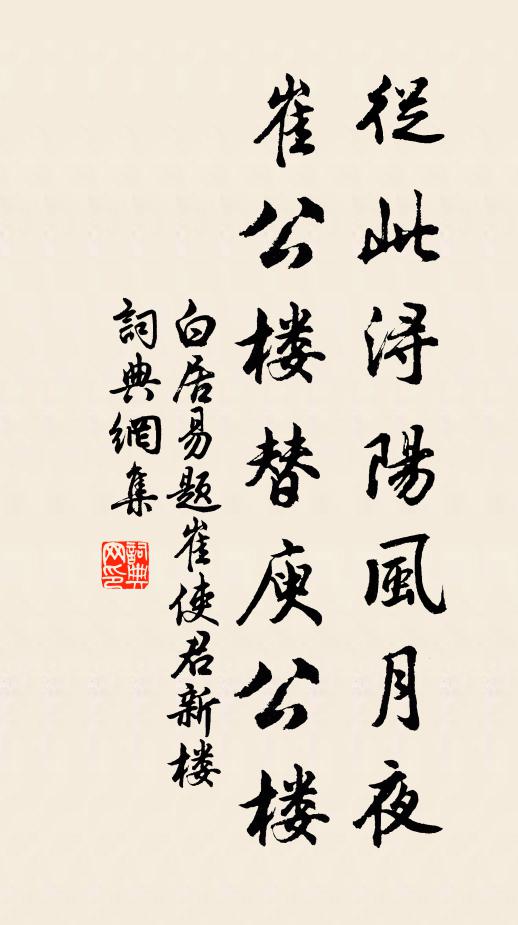 從此浔陽風月夜
崔公楼替庾公楼
白居易题崔使君新楼
詞典網集
詞典
网印